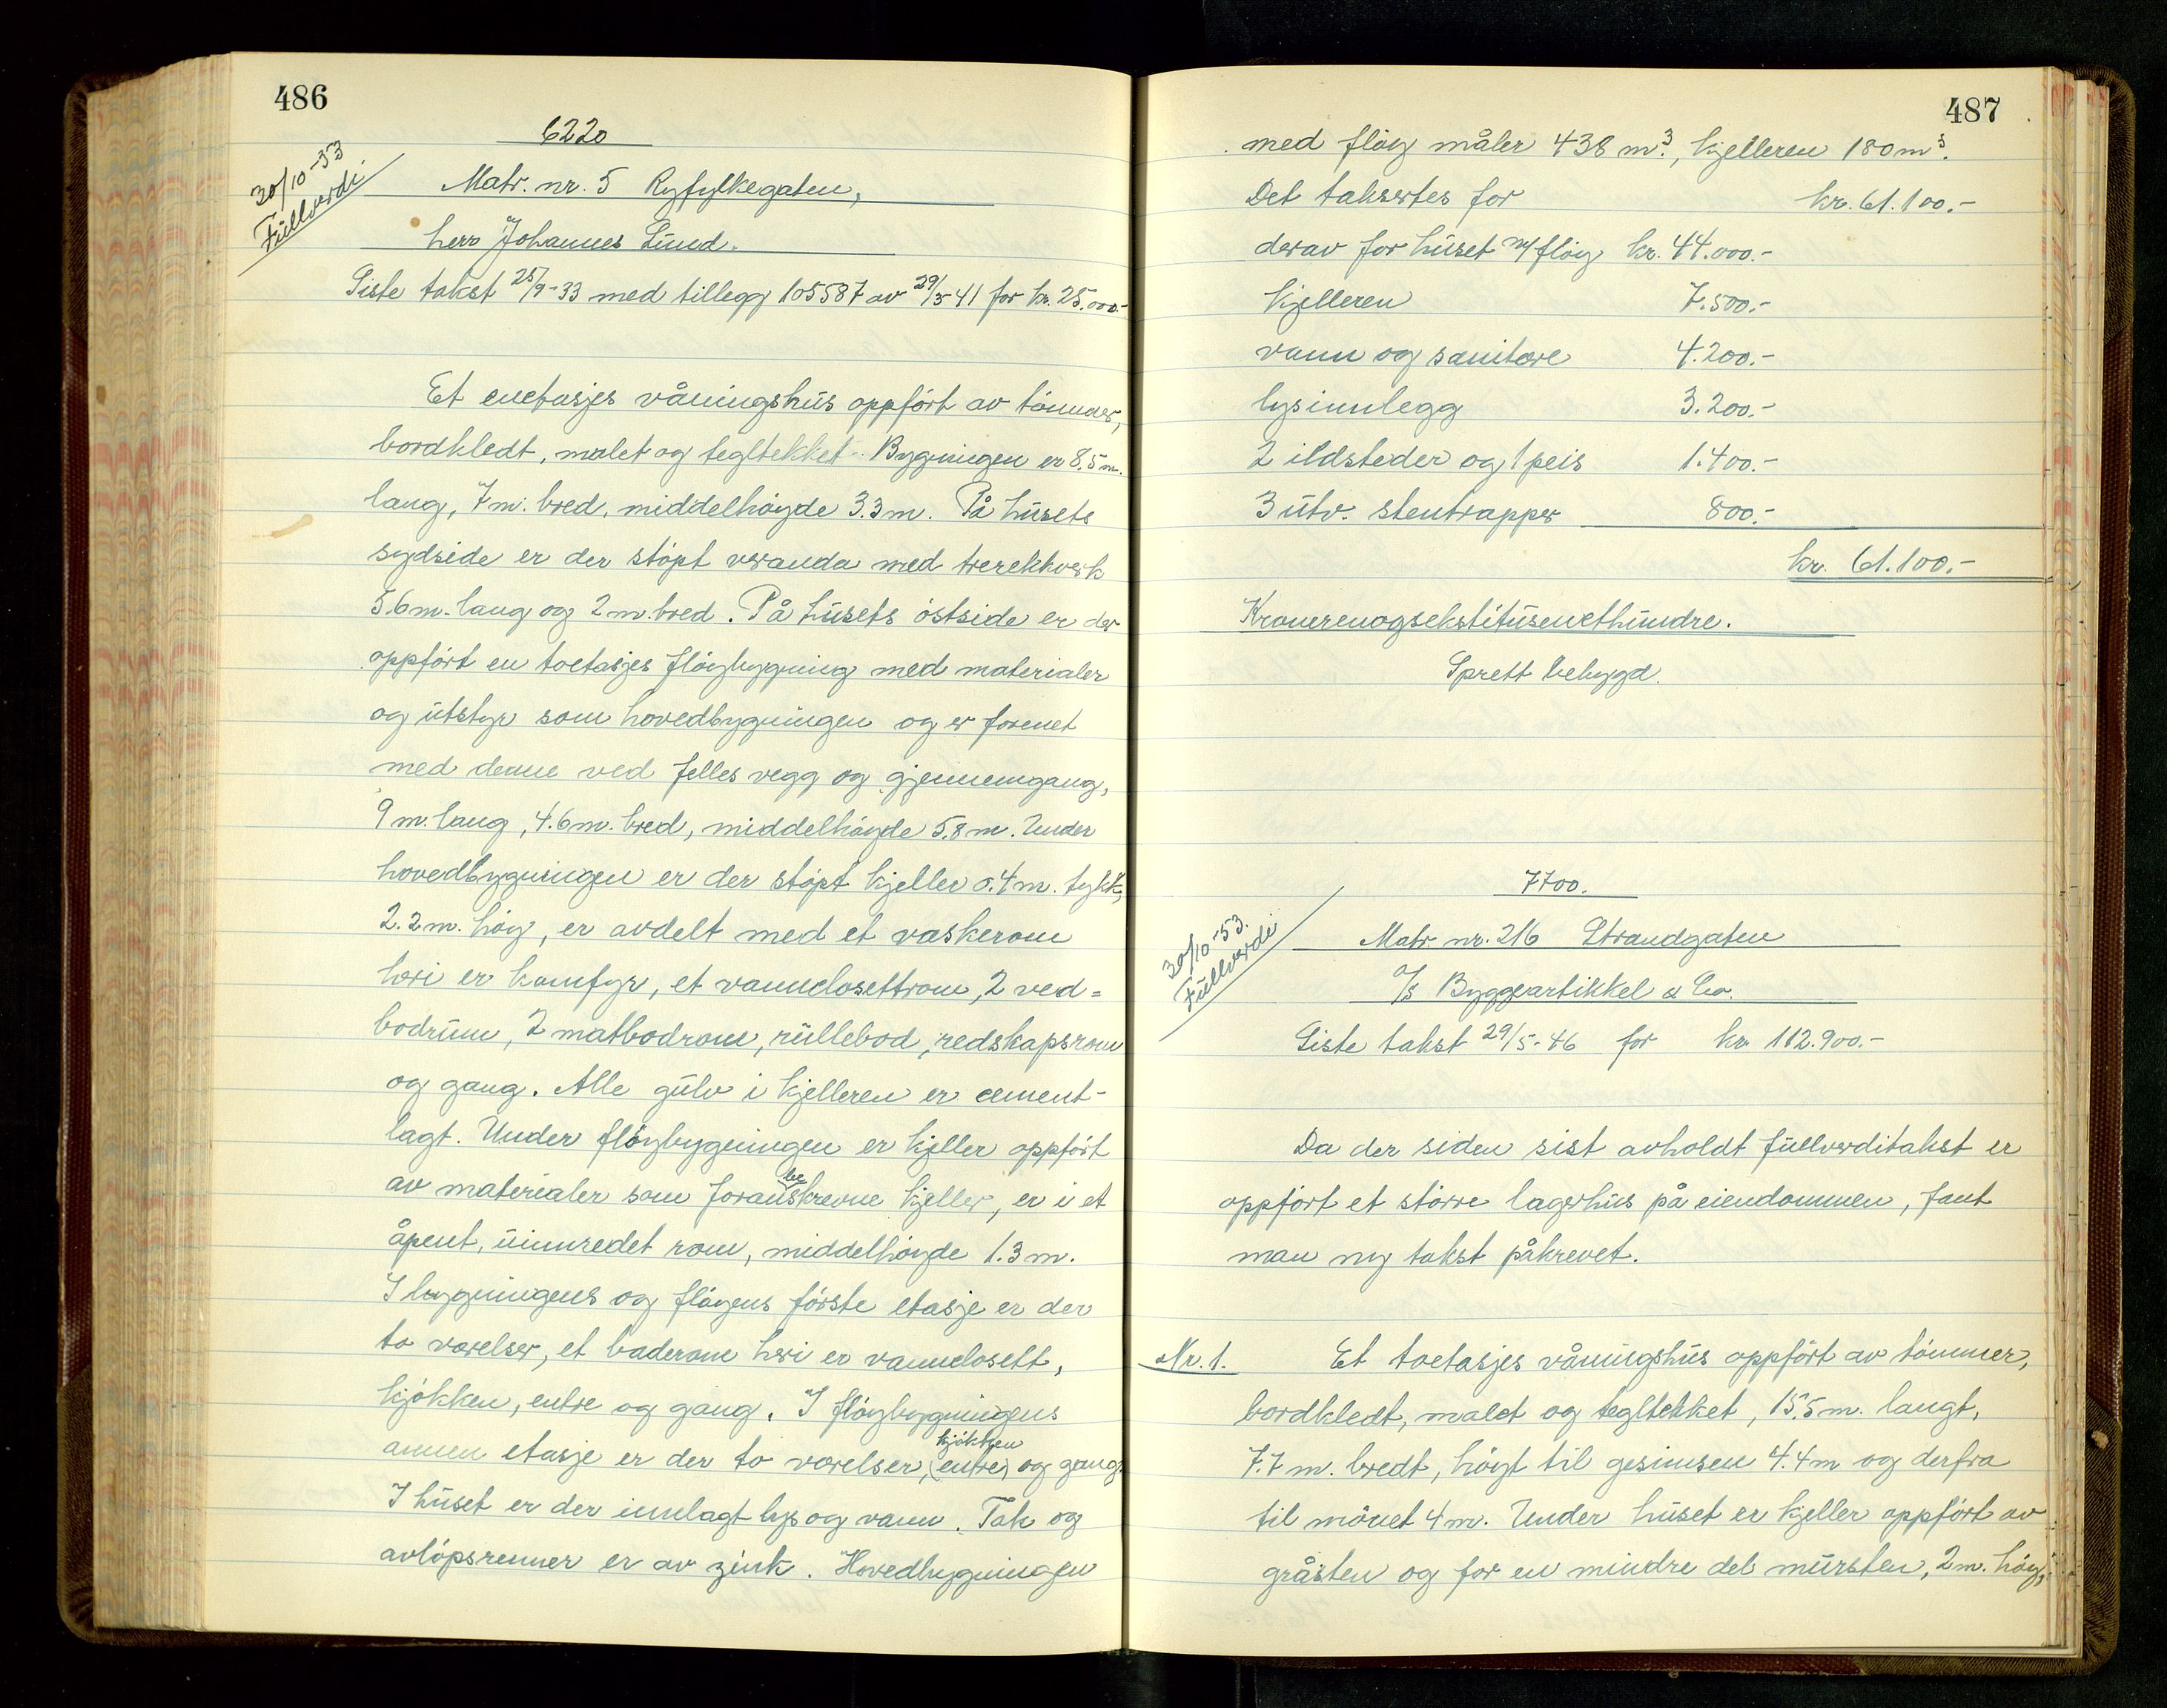 486
6220
30/10-53
Fullverdi
Matr. nr. 5 Ryfylkegaten,
herr Johannes Lund.
Siste takst 25/9-33 med tillegg 105587 av 29/5-41 for kr. 25.000.-
Et enetasjes våningshus oppført av tømmer,
bordkledt, malet og tegltekket. Bygningen er 8.5 m.
lang, 7 m. bred, middelhøyde 3.3 m. På husets
sydside er der støpt veranda med trerekkverk
5.6 m. lang og 2 m. bred. På husets østside er der
oppført en toetasjes fløybygning med materialer
og utstyr som hovedbygningen og er forenet
med denne ved felles vegg og gjennemgang,
9 m. lang, 4.6 m. bred, middelhøyde 5.8 m. Under
hovedbygningen er der støpt kjeller 0.4 m. tykk,
2.2 m. høy, er avdelt med et vaskerom
hvri er komfyr, et vannclosettrom, 2 ved=
bodrum, 2 matbodrom, rullebod, redskapsrom
og gang. Alle gulv i kjelleren er cement-
lagt. Under fløybygningen er kjeller oppført
av materialer som foranbeskrevne kjeller, er i et
åpent, uinnredet rom, middelhøyde 1.3 m.
I bygningens og fløyens første etasje er der
to værelser, et baderom hvri er vannclosett,
kjøkken, entre og gang. I fløybygningens
annen etasje er der to værelser, (entre) kjøkken og gang.
I huset er der innlagt lys og vann. Tak og
avløpsrenner er av zink. Hovedbygningen
487
med fløy måler 438 m³, kjelleren 180 m³.
Det taksertes for kr. 61.100.-
derav for huset m/fløy kr. 44.000.-
kjelleren 7.500.-
vann og sanitære 4.200.-
lysinnlegg 3.200.-
2 ildsteder og 1 peis 1.400.-
3 utv. stentrapper 800.-
kr. 61.100.-
Kronerenogsekstitusenethundre.
Sprett bebygd.
7700.
30/10-53.
Fullverdi
Matr. nr. 216 Strandgaten
A/s Byggeartikkel & Co.
Siste takst 29/5-46 for kr. 112.900.-
Da der siden sist avholdt fullverditakst er
oppført et større lagerhus på eiendommen, fant
man ny takst påkrevet.
Nr. 1. Et toetasjes våningshus oppført av tømmer,
bordkledt, malet og tegltekket, 15.5 m. langt,
7.7 m. bredt, høyt til gesimsen 4.4 m og derfra
til mønet 4 m. Under huset er kjeller oppført av
gråsten og for en mindre del mursten, 2 m. høy,